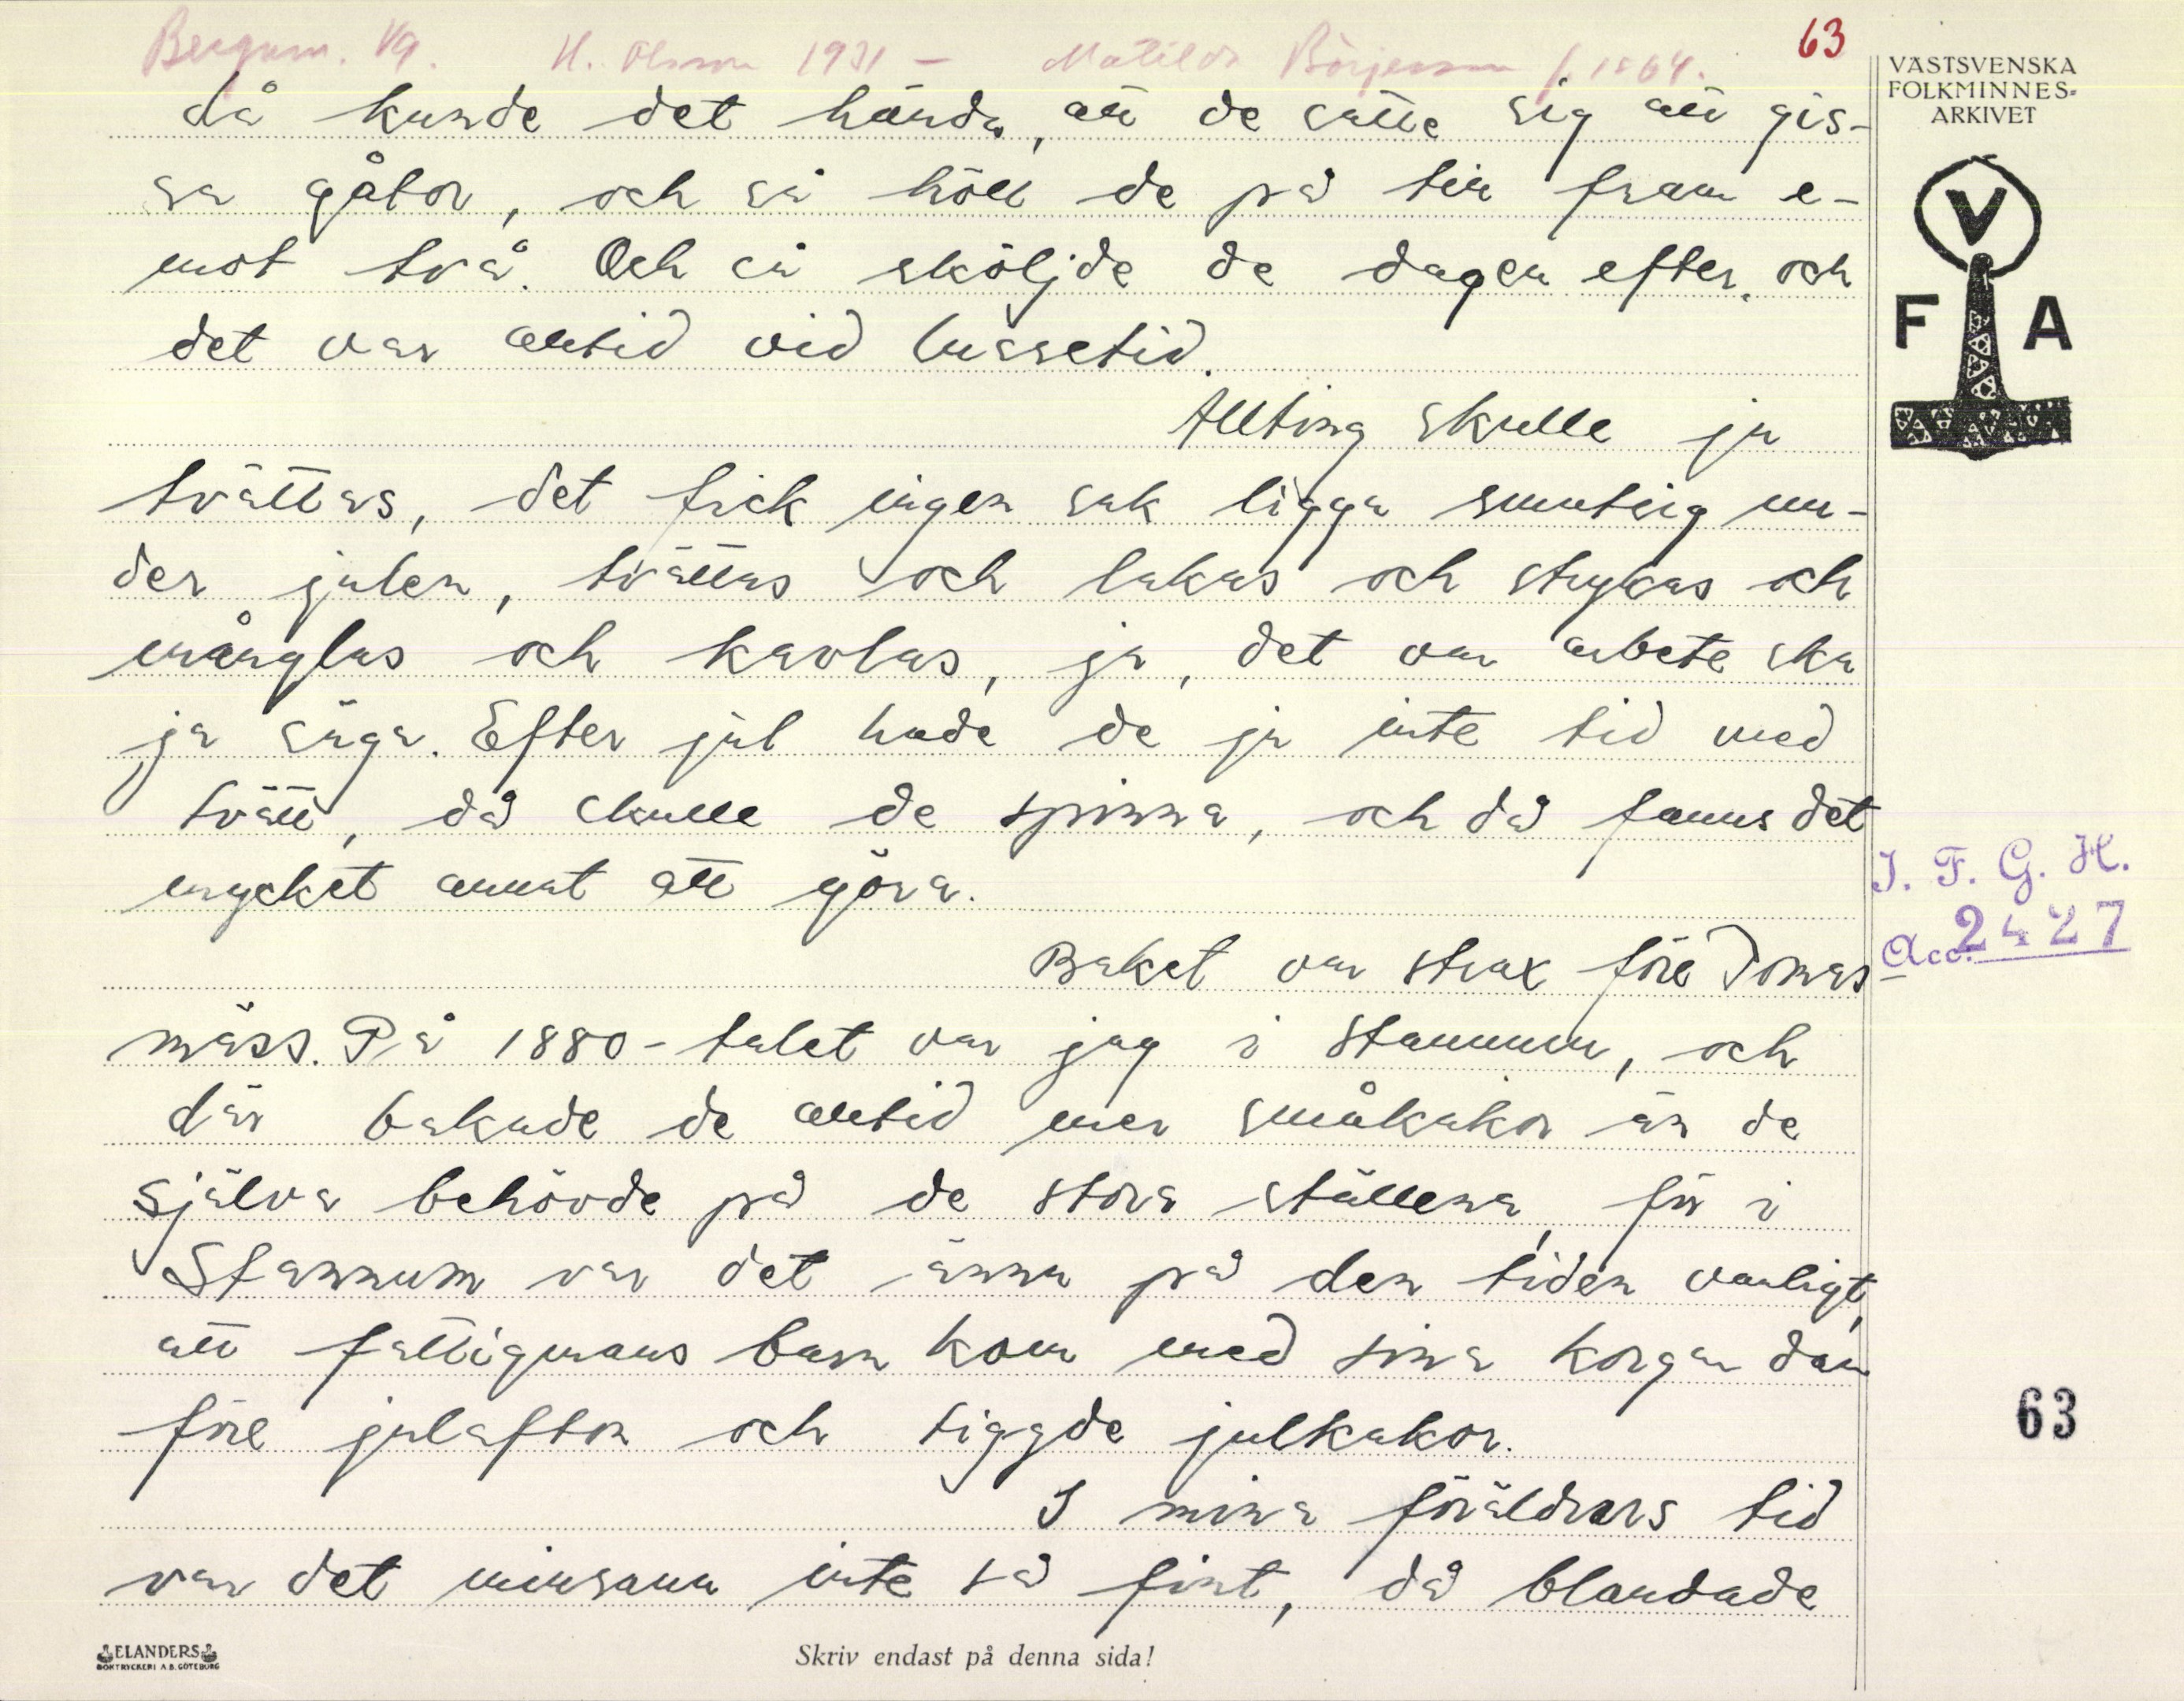 Bergum. Vg. H. Olsson 1931 - Matilda Börjesson f. 1864. 63
VÄSTSVENSKA
FOLKMINNES-
ARKIVET
V
F A
då kunde det hända, att de satte sig att gis-
sa gåtor, och så höll de på till fram e-
mot två. Och så sköljde de dagen efter, och
det var alltid vid lussetid.
Allting skulle ju
tvättas, det fick ingen sak ligga smutsig un-
der julen, tvättas och lakas och strykas och
månglas och kavlas, ja, det var arbete ska
ja säga. Efter jul hade de ju inte tid med
tvätt, då skulle de spinna, och då fanns det
mycket annat att göra.
Baket var strax före Tomas-
mäss. På 1880-talet var jag i Stannum, och
där bakade de alltid mer småkakor än de
själva behövde på de stora ställena, för i
Stannum var det ännu på den tiden vanligt,
att fattigmans barn kom med sina korgar dan
före julafton och tiggde julkakor.
I mina föräldrars tid
var det minsann inte så fint, då blandade
I. F. G. H.
Acc. 2427
63
ELANDERS
BOKTRYCKERI A.B. GÖTEBORG
Skriv endast på denna sida!